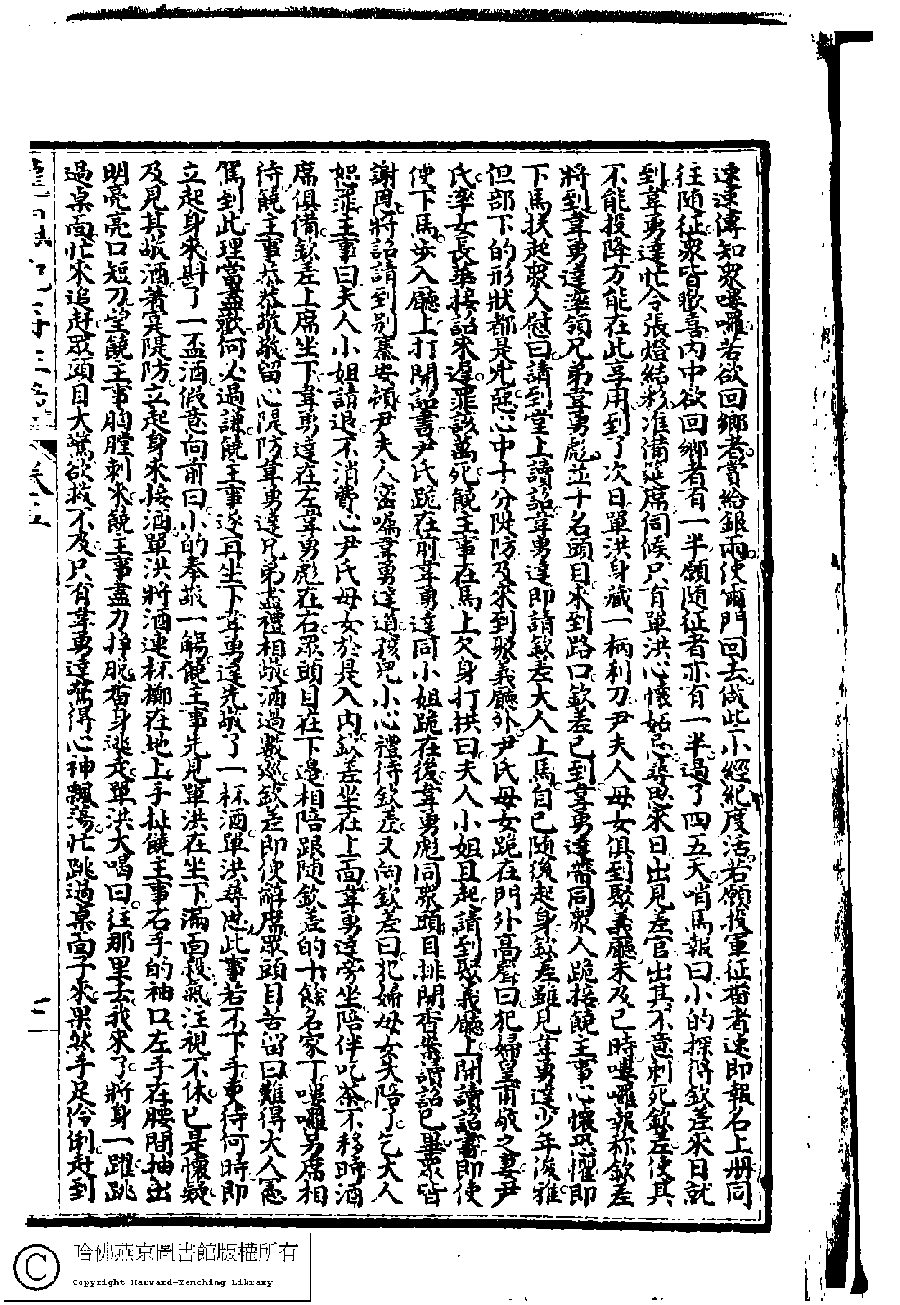 速速傳知眾嘍囉若欲回鄉者賞給銀兩使爾門回去做些小經紀度活若願投軍征番者速即報名上冊同
往隨征眾皆歡喜內中欲回鄉者有一半願隨征者亦有一半過了四五天哨馬報曰小的探得欽差來日就
到韋勇達忙令張燈結彩准備筵席伺候只有單洪心懷妬忌尋思來日出見差官出其不意刺死欽差使其
不能投降方能在此享用到了次日單洪身藏一柄利刀尹夫人母女俱到聚義廳未及巳時嘍囉報称欽差
將到韋勇達率領兄弟韋勇彪並十名頭目來到路口欽差已到韋勇達齊同眾人跪接饒主事心懷恐懼即
下馬扶起眾人慰曰請到堂上讀詔韋勇達即請欽差大人上馬自已随後起身欽差雖見韋勇達少年俊雅
但部下的形狀都是兇惡心中十分隄防及來到聚義廳外尹氏母女跪在門外高聲曰犯婦皇甫敬之妻尹
氏率女長華接詔來遲罪該萬死饒主事在馬上欠身打拱曰夫人小姐且起請到聚義廳上開讀詔書即使
使下馬步入廳上打開詔書尹氏跪在前韋勇達同小姐跪在後韋勇彪同眾頭目排開香案讀詔已畢眾皆
謝恩將詔請到別寨安頓尹夫人密囑韋勇達道孩兒小心禮待欽差又向欽差曰犯婦母女失陪了乞大人
恕罪主事曰夫人小姐請退不消費心尹氏母女於是入內欽差坐在上面韋勇達旁坐陪伴吃茶不移時酒
席俱備欽差上席坐下韋勇達在左韋勇彪在右眾頭目在下邊相陪跟隨欽差的十餘名家丁嘍囉另席相
待饒主事恭恭敬敬留心隄防韋勇達兄弟盡禮相敬酒過數巡欽差即便辭席眾頭目苦留曰難得大人駕
駕到此理當盡歡何必過謙饒主事遂再坐下韋勇達先敬了一杯酒單洪尋思此事若不下手更待何時即
立起身來斟了一盃酒假意向前曰小的奉敬一觴饒主事先見單洪在坐下滿面殺氣注視不休已是懷疑
及見其敬酒着實隄防立起身來接酒單洪將酒連杯擲在地上手扯饒主事右手的袖口左手在腰間抽出
明亮亮口短刀望饒主事胸膛刺來饒主事盡力掙脫番身逃走單洪大喝曰往那里去我來了將身一躍跳
過桌面忙來追赶眾頭目大驚欲救不及只有韋勇達驚得心神飄蕩忙跳過桌面子來果然手足伶俐赶到
卷五
哈佛燕京圖書館版權所有
Copyright Harvard-Yenching Library